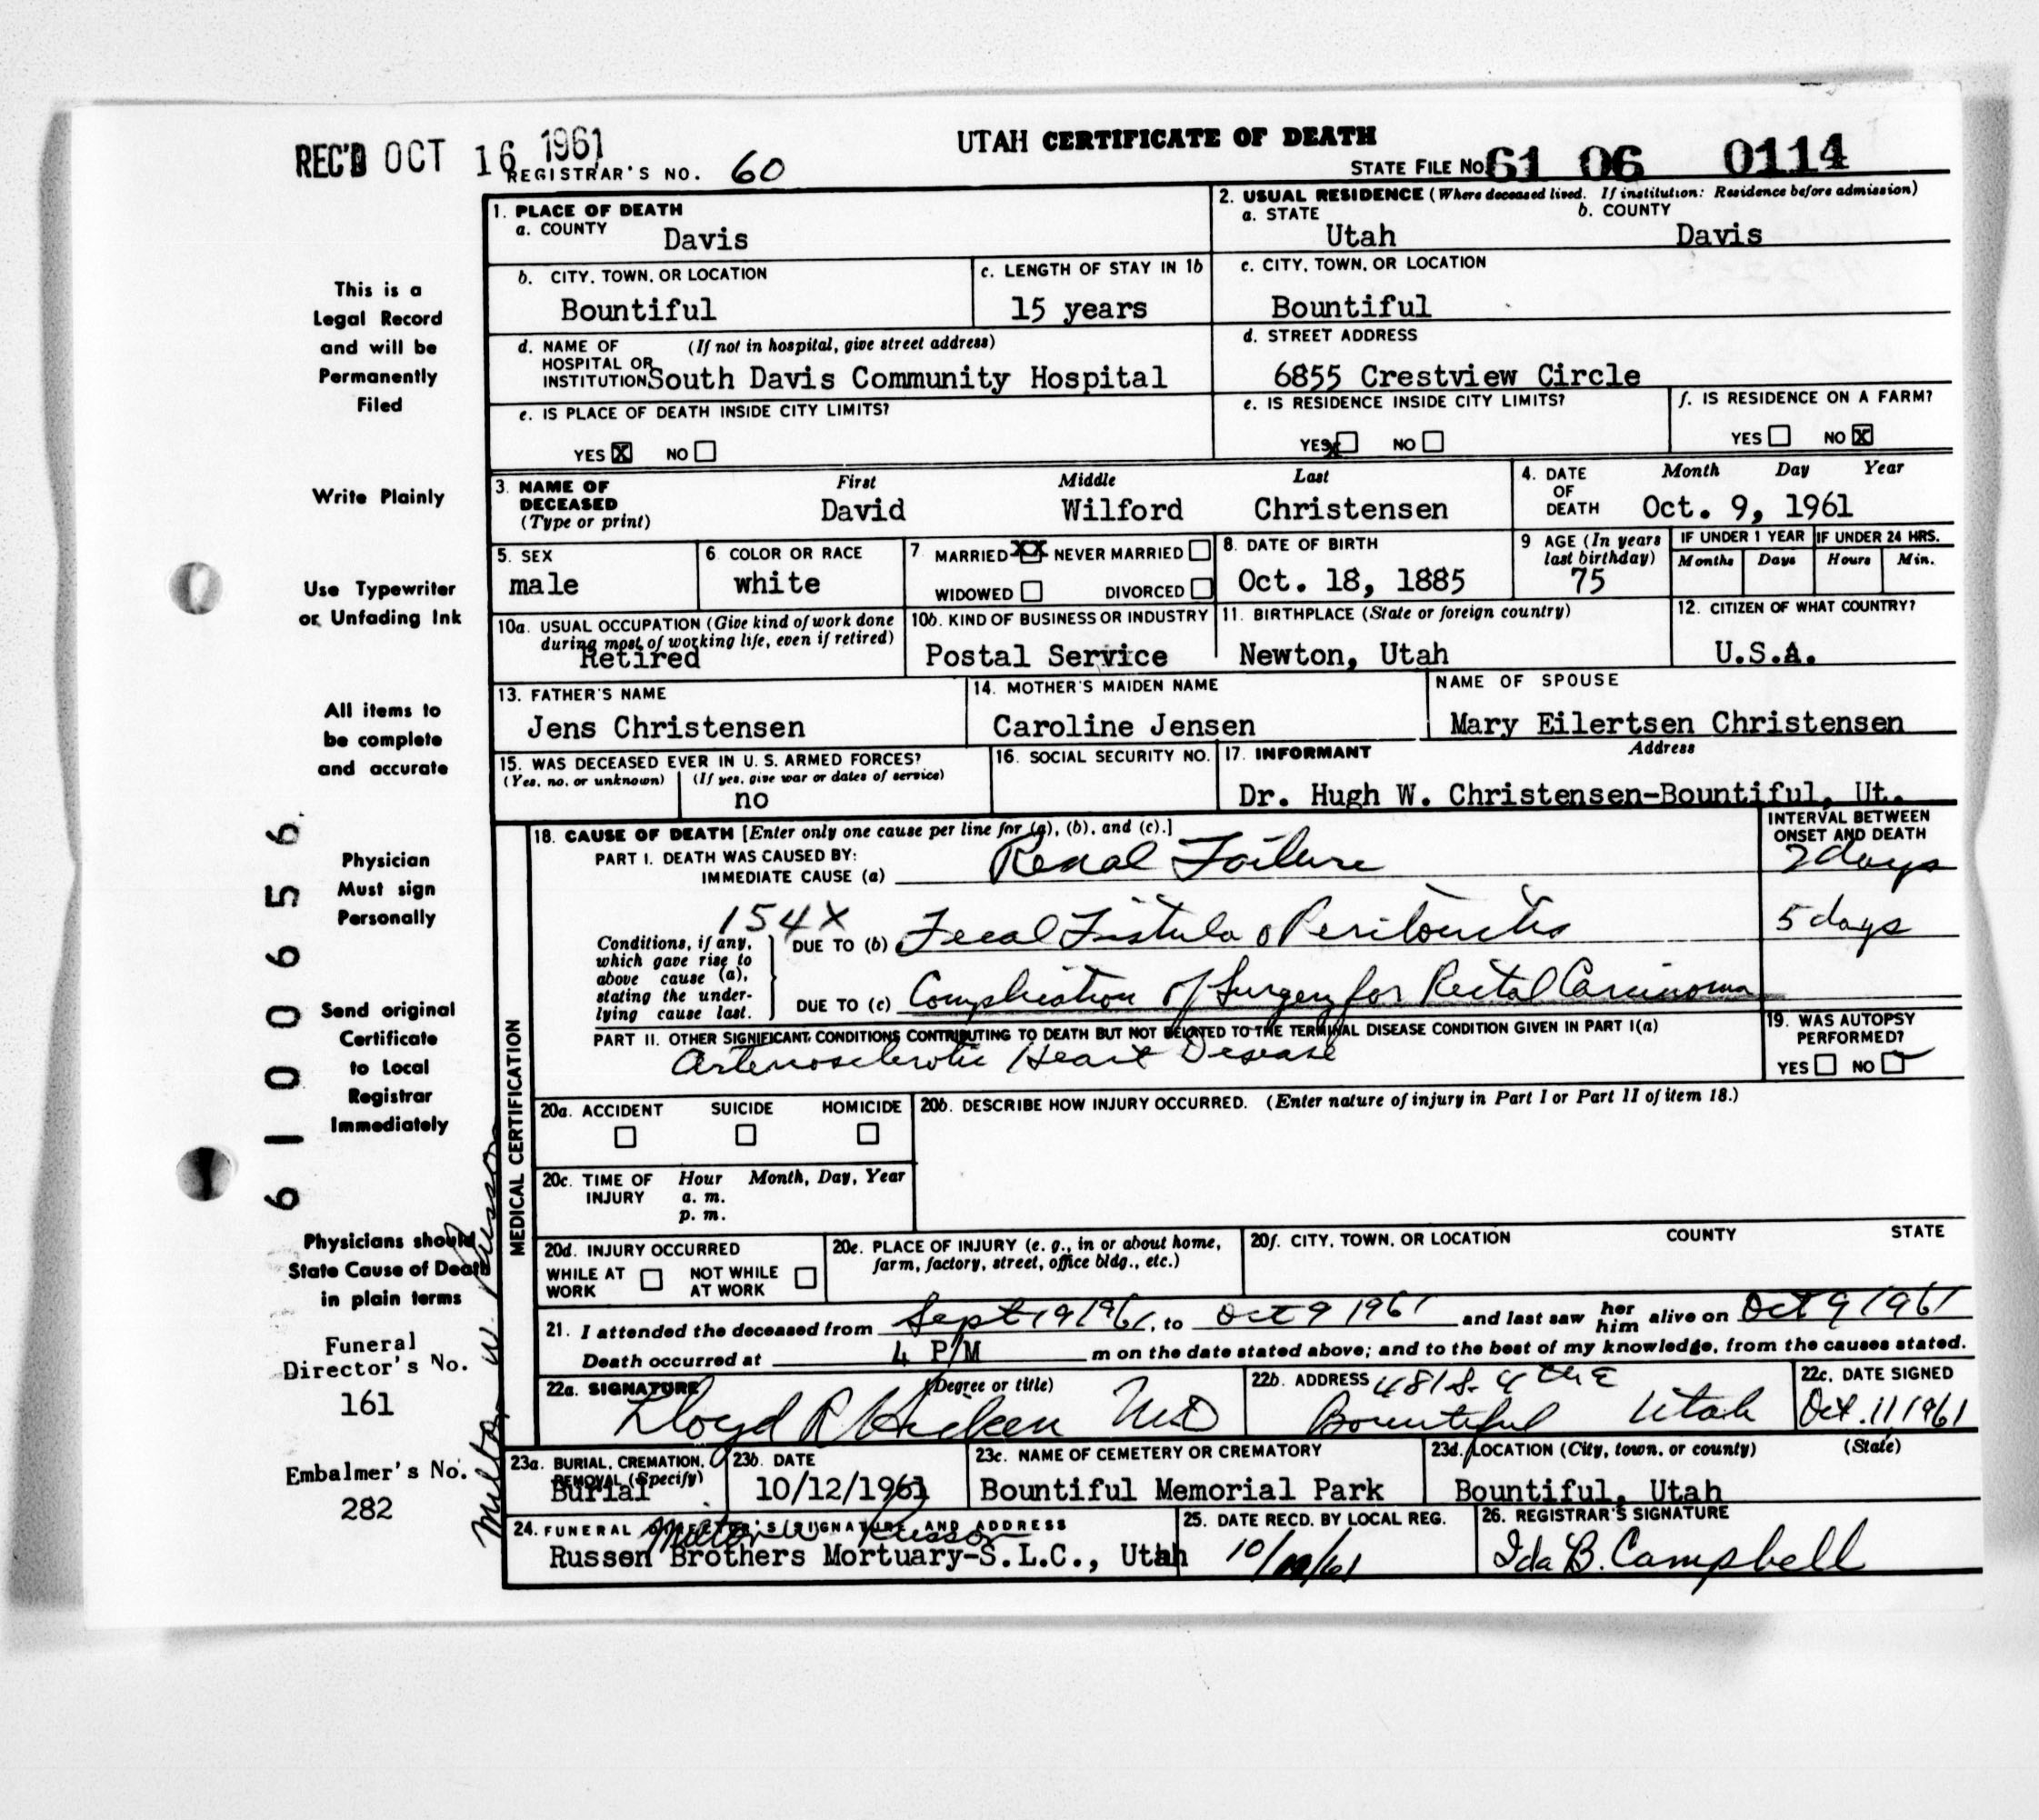 REC'D OCT 16 1961
UTAH CERTIFICATE OF DEATH
REGISTRAR'S NO. 60
STATE FILE NO. 61 06 0114
1. PLACE OF DEATH
a. COUNTY Davis
2. USUAL RESIDENCE (Where deceased lived. If institution: Residence before admission)
a. STATE Utah b. COUNTY Davis
b. CITY, TOWN, OR LOCATION Bountiful
c. LENGTH OF STAY IN 1b 15 years
c. CITY, TOWN, OR LOCATION Bountiful
d. NAME OF HOSPITAL OR INSTITUTION (If not in hospital, give street address) South Davis Community Hospital
d. STREET ADDRESS 6855 Crestview Circle
e. IS PLACE OF DEATH INSIDE CITY LIMITS?
YES X NO
e. IS RESIDENCE INSIDE CITY LIMITS?
YES X NO
f. IS RESIDENCE ON A FARM?
YES NO X
3. NAME OF DECEASED (Type or print)
First Middle Last
David Wilford Christensen
4. DATE OF DEATH Month Day Year
Oct. 9, 1961
5. SEX male
6 COLOR OR RACE white
7 MARRIED XX NEVER MARRIED
WIDOWED DIVORCED
8. DATE OF BIRTH Oct. 18, 1885
9 AGE (In years last birthday) 75
IF UNDER 1 YEAR Months Days
IF UNDER 24 HRS. Hours Min.
10a. USUAL OCCUPATION (Give kind of work done during most of working life, even if retired) Retired
10b. KIND OF BUSINESS OR INDUSTRY Postal Service
11. BIRTHPLACE (State or foreign country) Newton, Utah
12. CITIZEN OF WHAT COUNTRY? U.S.A.
13. FATHER'S NAME Jens Christensen
14. MOTHER'S MAIDEN NAME Caroline Jensen
NAME OF SPOUSE Mary Eilertsen Christensen
15. WAS DECEASED EVER IN U. S. ARMED FORCES?
(Yes, no, or unknown) (If yes, give war or dates of service)
no
16. SOCIAL SECURITY NO.
17. INFORMANT Address
Dr. Hugh W. Christensen-Bountiful, Ut.
MEDICAL CERTIFICATION
18. CAUSE OF DEATH [Enter only one cause per line for (a), (b), and (c).]
INTERVAL BETWEEN ONSET AND DEATH
PART I. DEATH WAS CAUSED BY:
IMMEDIATE CAUSE (a) Renal Failure 2 days
154X
Conditions, if any, which gave rise to above cause (a), stating the underlying cause last.
DUE TO (b) Fecal Fistula & Peritonitis 5 days
DUE TO (c) Complication of Surgery for Rectal Carcinoma
PART II. OTHER SIGNIFICANT CONDITIONS CONTRIBUTING TO DEATH BUT NOT RELATED TO THE TERMINAL DISEASE CONDITION GIVEN IN PART I(a)
Arteriosclerotic Heart Disease
19. WAS AUTOPSY PERFORMED?
YES NO
20a. ACCIDENT SUICIDE HOMICIDE
20b. DESCRIBE HOW INJURY OCCURRED. (Enter nature of injury in Part I or Part II of item 18.)
20c. TIME OF INJURY Hour Month, Day, Year
a. m.
p. m.
20d. INJURY OCCURRED
WHILE AT WORK NOT WHILE AT WORK
20e. PLACE OF INJURY (e. g., in or about home, farm, factory, street, office bldg., etc.)
20f. CITY, TOWN, OR LOCATION COUNTY STATE
21. I attended the deceased from Sept 19 1961, to Oct 9 1961 and last saw her him alive on Oct 9 1961
Death occurred at 4 P/M m on the date stated above; and to the best of my knowledge, from the causes stated.
22a. SIGNATURE (Degree or title)
Lloyd R Hicken MD
22b. ADDRESS 481 S. 4th E
Bountiful Utah
22c. DATE SIGNED Oct. 11 1961
23a. BURIAL, CREMATION, REMOVAL (Specify) Burial
23b. DATE 10/12/1961
23c. NAME OF CEMETERY OR CREMATORY Bountiful Memorial Park
23d. LOCATION (City, town, or county) (State)
Bountiful, Utah
24. FUNERAL DIRECTOR'S SIGNATURE AND ADDRESS
Milton W. Russon
Russon Brothers Mortuary-S.L.C., Utah
25. DATE RECD. BY LOCAL REG.
26. REGISTRAR'S SIGNATURE Ida B. Campbell
This is a
Legal Record
and will be
Permanently
Filed
Write Plainly
Use Typewriter
or Unfading Ink
All items to
be complete
and accurate
Physician
Must sign
Personally
Send original
Certificate
to Local
Registrar
Immediately
Physicians should
State Cause of Death
in plain terms
Funeral
Director's No.
161
Embalmer's No.
282
6100656
Milton W. Russon